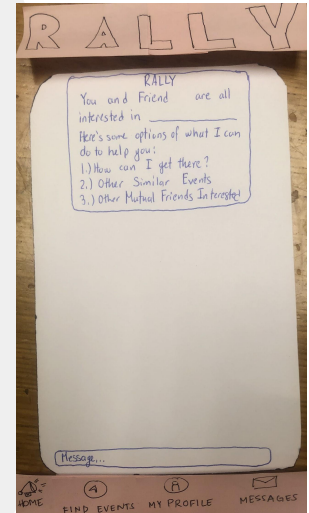 RALLY
RALLY
You and Friend are all
interested in
Here's some options of what I can
do to help you:
1.) How can I get there?
2.) Other Similar Events
3.) Other Mutual Friends Interested
Message...
HOME FIND EVENTS MY PROFILE MESSAGES